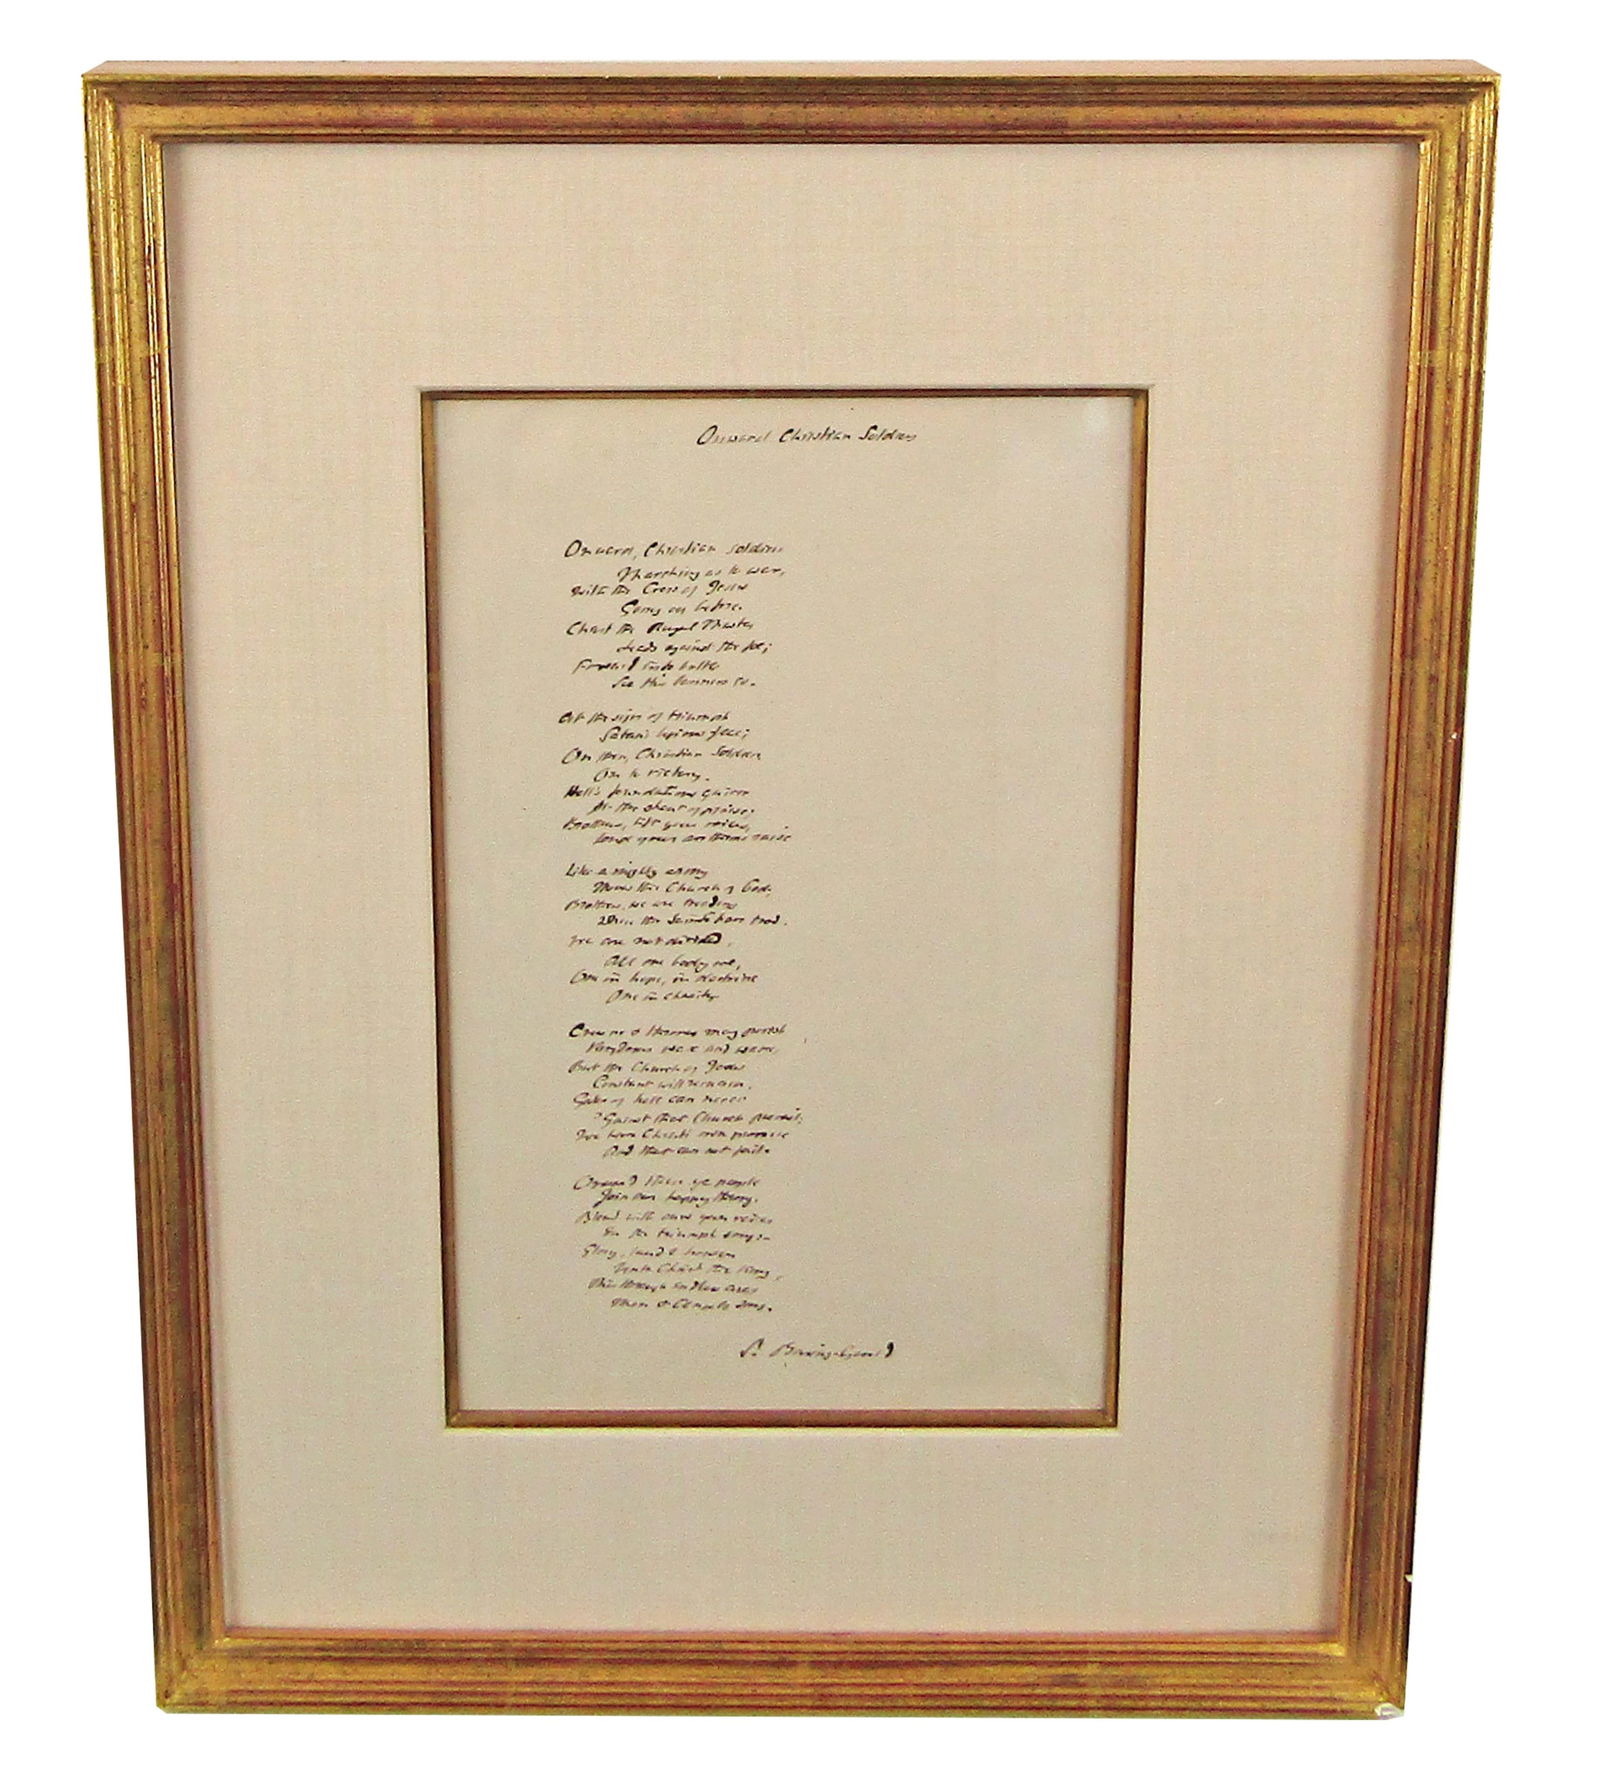 Onward Christian Soldiers
Onward, Christian soldiers
Marching as to war,
With the Cross of Jesus
Going on before.
Christ the Royal Master
Leads against the foe;
Forward into battle
See His banners go.
At the sign of triumph
Satan's legions flee;
On then, Christian Soldiers
On to victory.
Hell's foundations quiver
At the shout of praise;
Brothers, lift your voices,
Loud your anthems raise
Like a mighty army
Moves the Church of God,
Brothers, we are treading
Where the Saints have trod.
We are not divided,
All one body we,
One in hope, in doctrine
One in charity
Crowns & thrones may perish
Kingdoms wax and wane,
But the Church of Jesus
Constant will remain.
Gates of hell can never
'Gainst that Church prevail;
We have Christ's own promise
And that can not fail.
Onward then ye people
Join our happy throng.
Blend with ours your voices
In the triumph song:-
Glory, laud & honour
Unto Christ the King,
This through endless ages
Men & Angels sing.
S. Baring-Gould